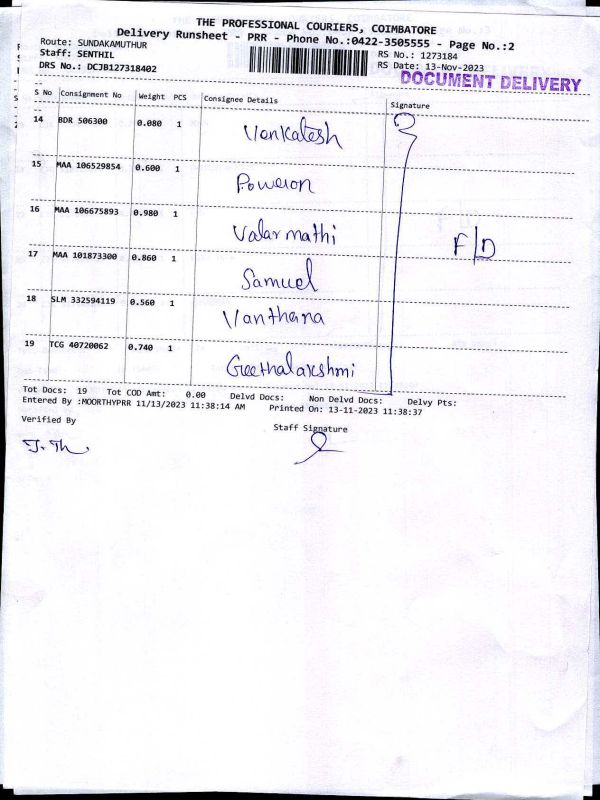 THE PROFESSIONAL COURIERS, COIMBATORE
Delivery Runsheet - PRR - Phone No.:0422-3505555 - Page No.:2
Route: SUNDAKAMUTHUR
RS No.: 1273184
Staff: SENTHIL
RS Date: 13-Nov-2023
DRS No.: DCJB127318402
DOCUMENT DELIVERY
S No Consignment No Weight PCS Consignee Details Signature
14 BDR 506300 0.080 1 Venkatesh
15 MAA 106529854 0.600 1 Poweron
16 MAA 106675893 0.980 1 Valarmathi
F/D
17 MAA 101873300 0.860 1 Samuel
18 SLM 332594119 0.560 1 Vanthana
19 TCG 40720062 0.740 1 Geethalakshmi
Tot Docs: 19 Tot COD Amt: 0.00 Delvd Docs: Non Delvd Docs: Delvy Pts:
Entered By :MOORTHYPRR 11/13/2023 11:38:14 AM Printed On: 13-11-2023 11:38:37
Verified By
Staff Signature